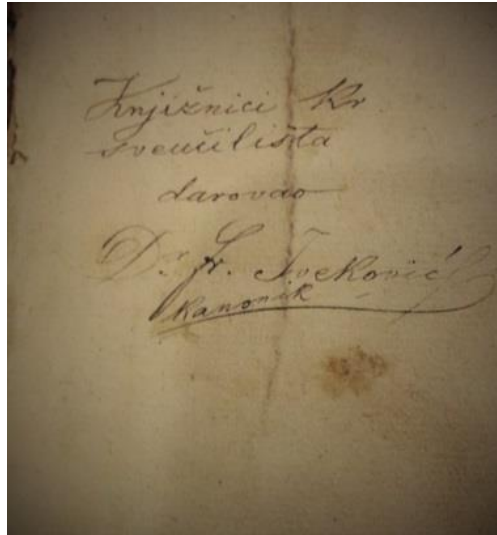 Knjižnici Kr
sveučilišta
darovao
Dr. fr. Iveković
kanonik